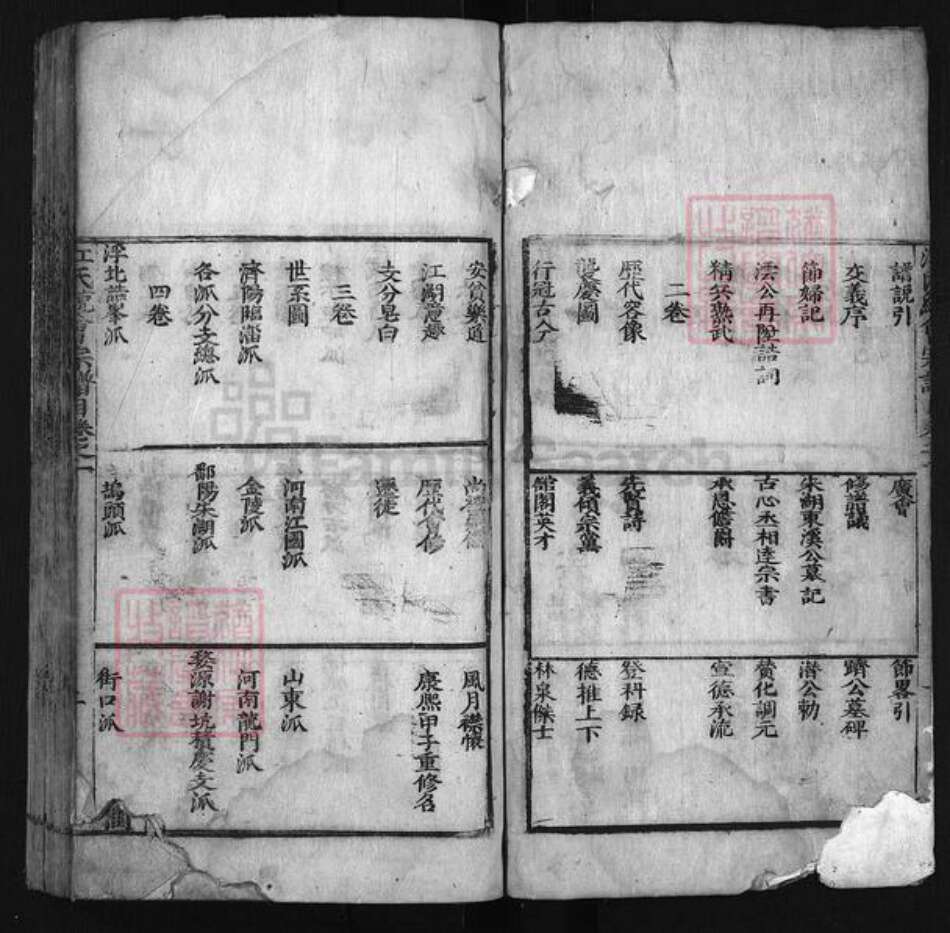 譜說引
廣會
飾畧引
交義序
修譜議
躋公墓碑
節婦記
朱湖東溪公墓記
潛公勅
法公再陞誥詞
古心丞相逹宗書
贊化調元
精兵燕武
承恩儋爵
宣德承流
二卷
歷代容像
先賢詩
登科録
襲慶圖
義傾宗黨
德推上下
行冠古今
館閣英才
林泉傑士
安貧樂道
風月襟懷
江湖意趣
歷代會修
康熙甲子重修名
支分皂白
遷徒
三卷
世系圖
河南江國派
山東派
濟陽臨淄派
金陵派
河南龍門派
各派分支總派
鄱陽朱湖派
婺源謝坑積慶支派
四卷
浮北誥峯派
塢頭派
街口派
江氏統會宗譜目卷之一
二